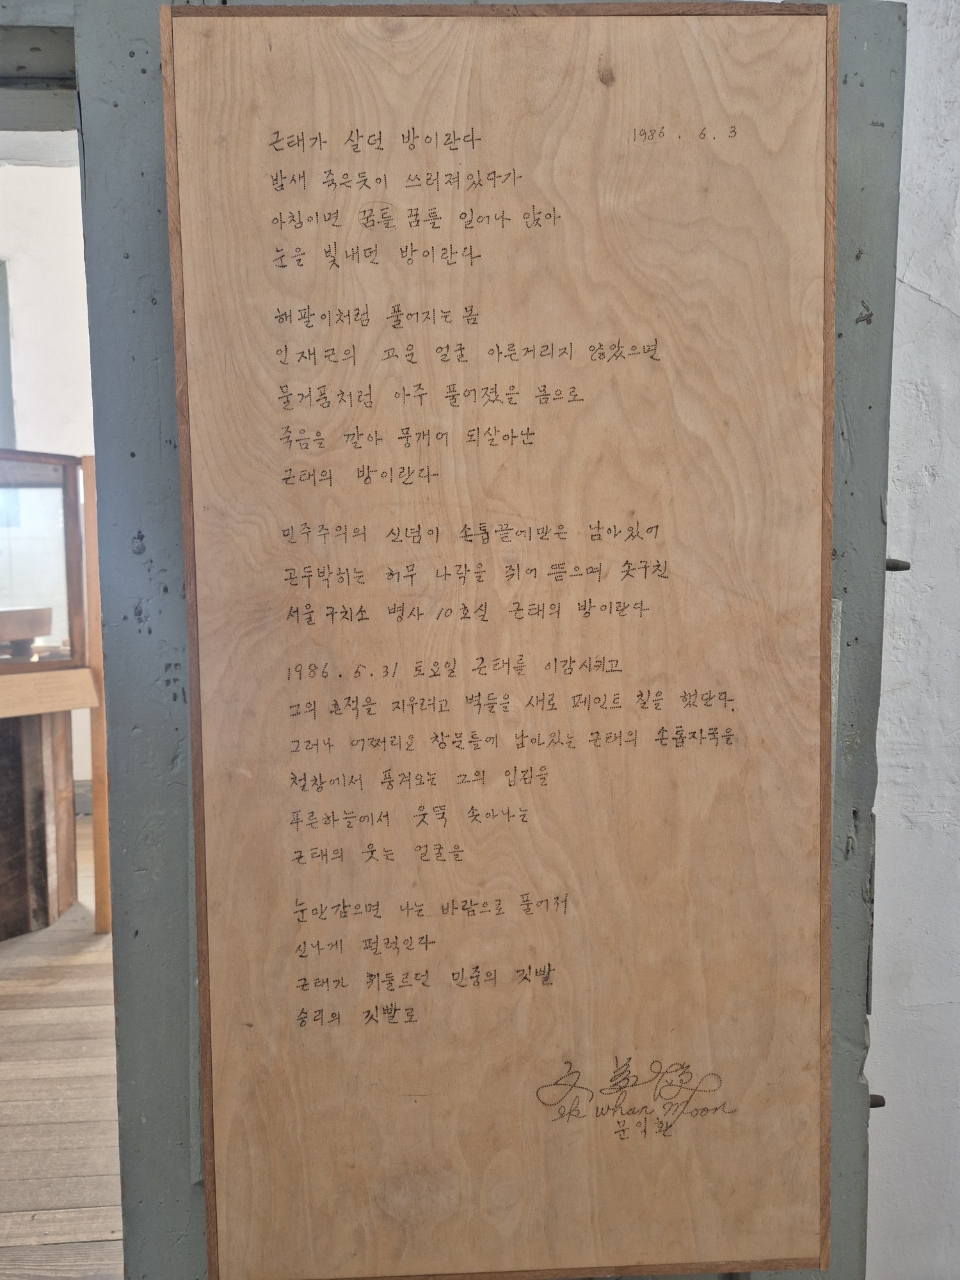 1986. 6. 3
근태가 살던 방이란다
밤새 죽은듯이 쓰러져있다가
아침이면 꿈틀 꿈틀 일어나 앉아
눈을 빛내던 방이란다
해팔이처럼 풀어지는 몸
인재근의 고운 얼굴 아른거리지 않았으면
물거품처럼 아주 풀어졌을 몸으로
죽음을 깔아 뭉개어 되살아난
근태의 방이란다
민주주의의 신념이 손톱끝에만은 남아있어
곤두박히는 허무 나락을 쥐어 뜯으며 솟구친
서울구치소 병사 10호실 근태의 방이란다
1986. 5. 31 토요일 근태를 이감시키고
그의 흔적을 지우려고 벽들을 새로 페인트 칠을 했단다.
그러나 어쩌리오 창문틀에 남아있는 근태의 손톱자국을
철창에서 풍겨오는 그의 입김을
푸른하늘에서 불뚝 솟아나는
근태의 웃는 얼굴을
눈만감으면 나는 바람으로 풀어져
신나게 펄럭인다
근태가 휘둘르던 민중의 깃빨
승리의 깃빨로
文益煥
Ik Whan Moon
문익환